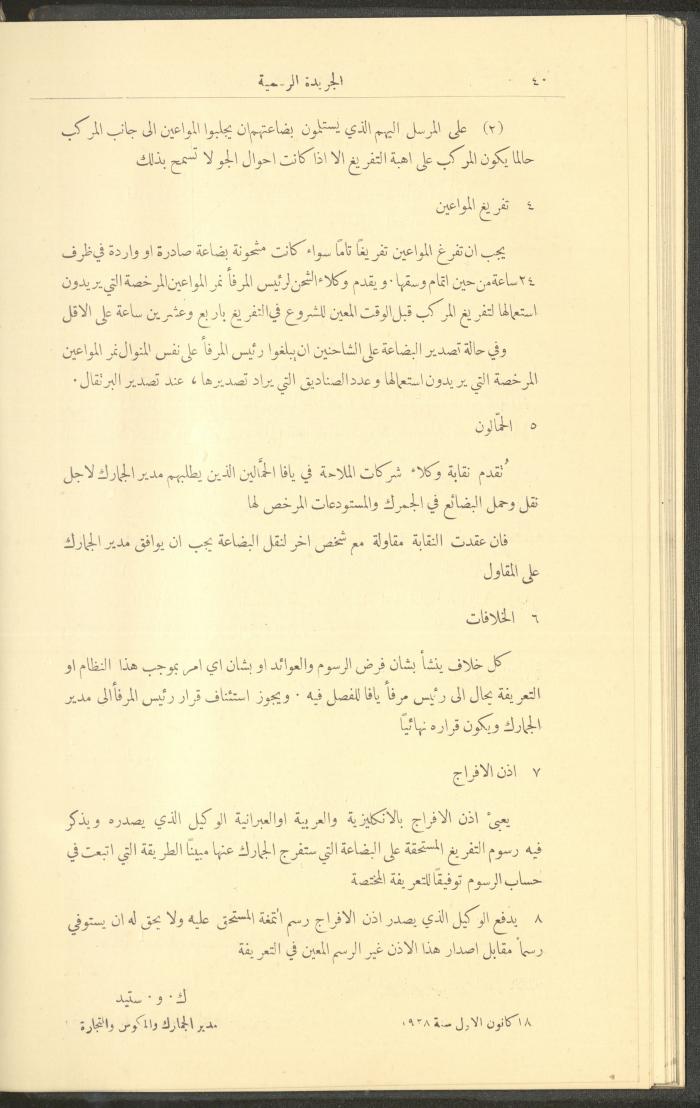 ٤٠ الجريدة الرسمية
(٢) على المرسل اليهم الذي يستلمون بضاعتهم ان يجلبوا المواعين الى جانب المركب
حالما يكون المركب على اهبة التفريغ الا اذا كانت احوال الجو لا تسمح بذلك
٤ تفريغ المواعين
يجب ان تفرغ المواعين تفريغًا تامًا سواء كانت مشحونة بضاعة صادرة او واردة في ظرف
٢٤ ساعة من حين اتمام وسقها. ويقدم وكلاء الشحن لرئيس المرفأ نمر المواعين المرخصة التي يريدون
استعمالها لتفريغ المركب قبل الوقت المعين للشروع في التفريغ باربع وعشرين ساعة على الاقل
وفي حالة تصدير البضاعة على الشاحنين ان يبلغوا رئيس المرفأ على نفس المنوال نمر المواعين
المرخصة التي يريدون استعمالها وعدد الصناديق التي يراد تصديرها، عند تصدير البرتقال.
٥ الحمّالون
تُقدم نقابة وكلاء شركات الملاحة في يافا الحمَّالين الذين يطلبهم مدير الجمارك لاجل
نقل وحمل البضائع في الجمرك والمستودعات المرخص لها
فان عقدت النقابة مقاولة مع شخص اخر لنقل البضاعة يجب ان يوافق مدير الجمارك
على المقاول
٦ الخلافات
كل خلاف ينشأ بشان فرض الرسوم والعوائد او بشان اي امر بموجب هذا النظام او
التعريفة يحال الى رئيس مرفأ يافا للفصل فيه. ويجوز استئناف قرار رئيس المرفأ الى مدير
الجمارك ويكون قراره نهائيًا
٧ اذن الافراج
يعبئ اذن الافراج بالانكليزية والعربية او العبرانية الوكيل الذي يصدره ويذكر
فيه رسوم التفريغ المستحقة على البضاعة التي ستفرج الجمارك عنها مبينًا الطريقة التي اتبعت في
حساب الرسوم توفيقًا للتعريفة المختصة
٨ يدفع الوكيل الذي يصدر اذن الافراج رسم التمغة المستحق عليه ولا يحق له ان يستوفي
رسمًا مقابل اصدار هذا الاذن غير الرسم المعين في التعريفة
ك. و. ستيد
١٨ كانون الاول سنة ١٩٢٨ مدير الجمارك والمكوس والتجارة